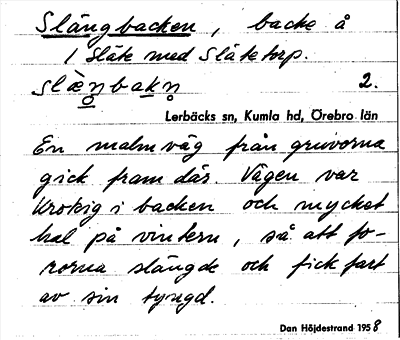 Slängbacken, backe å
1 Slåte med Slåtetorp.
slæ̀ŋbakn̥ 2.
Lerbäcks sn, Kumla hd, Örebro län
En malmväg från gruvorna
gick fram där. Vägen var
krokig i backen och mycket
hal på vintern, så att fo-
rorna slängde och fick fart
av sin tyngd.
Dan Höjdestrand 1958